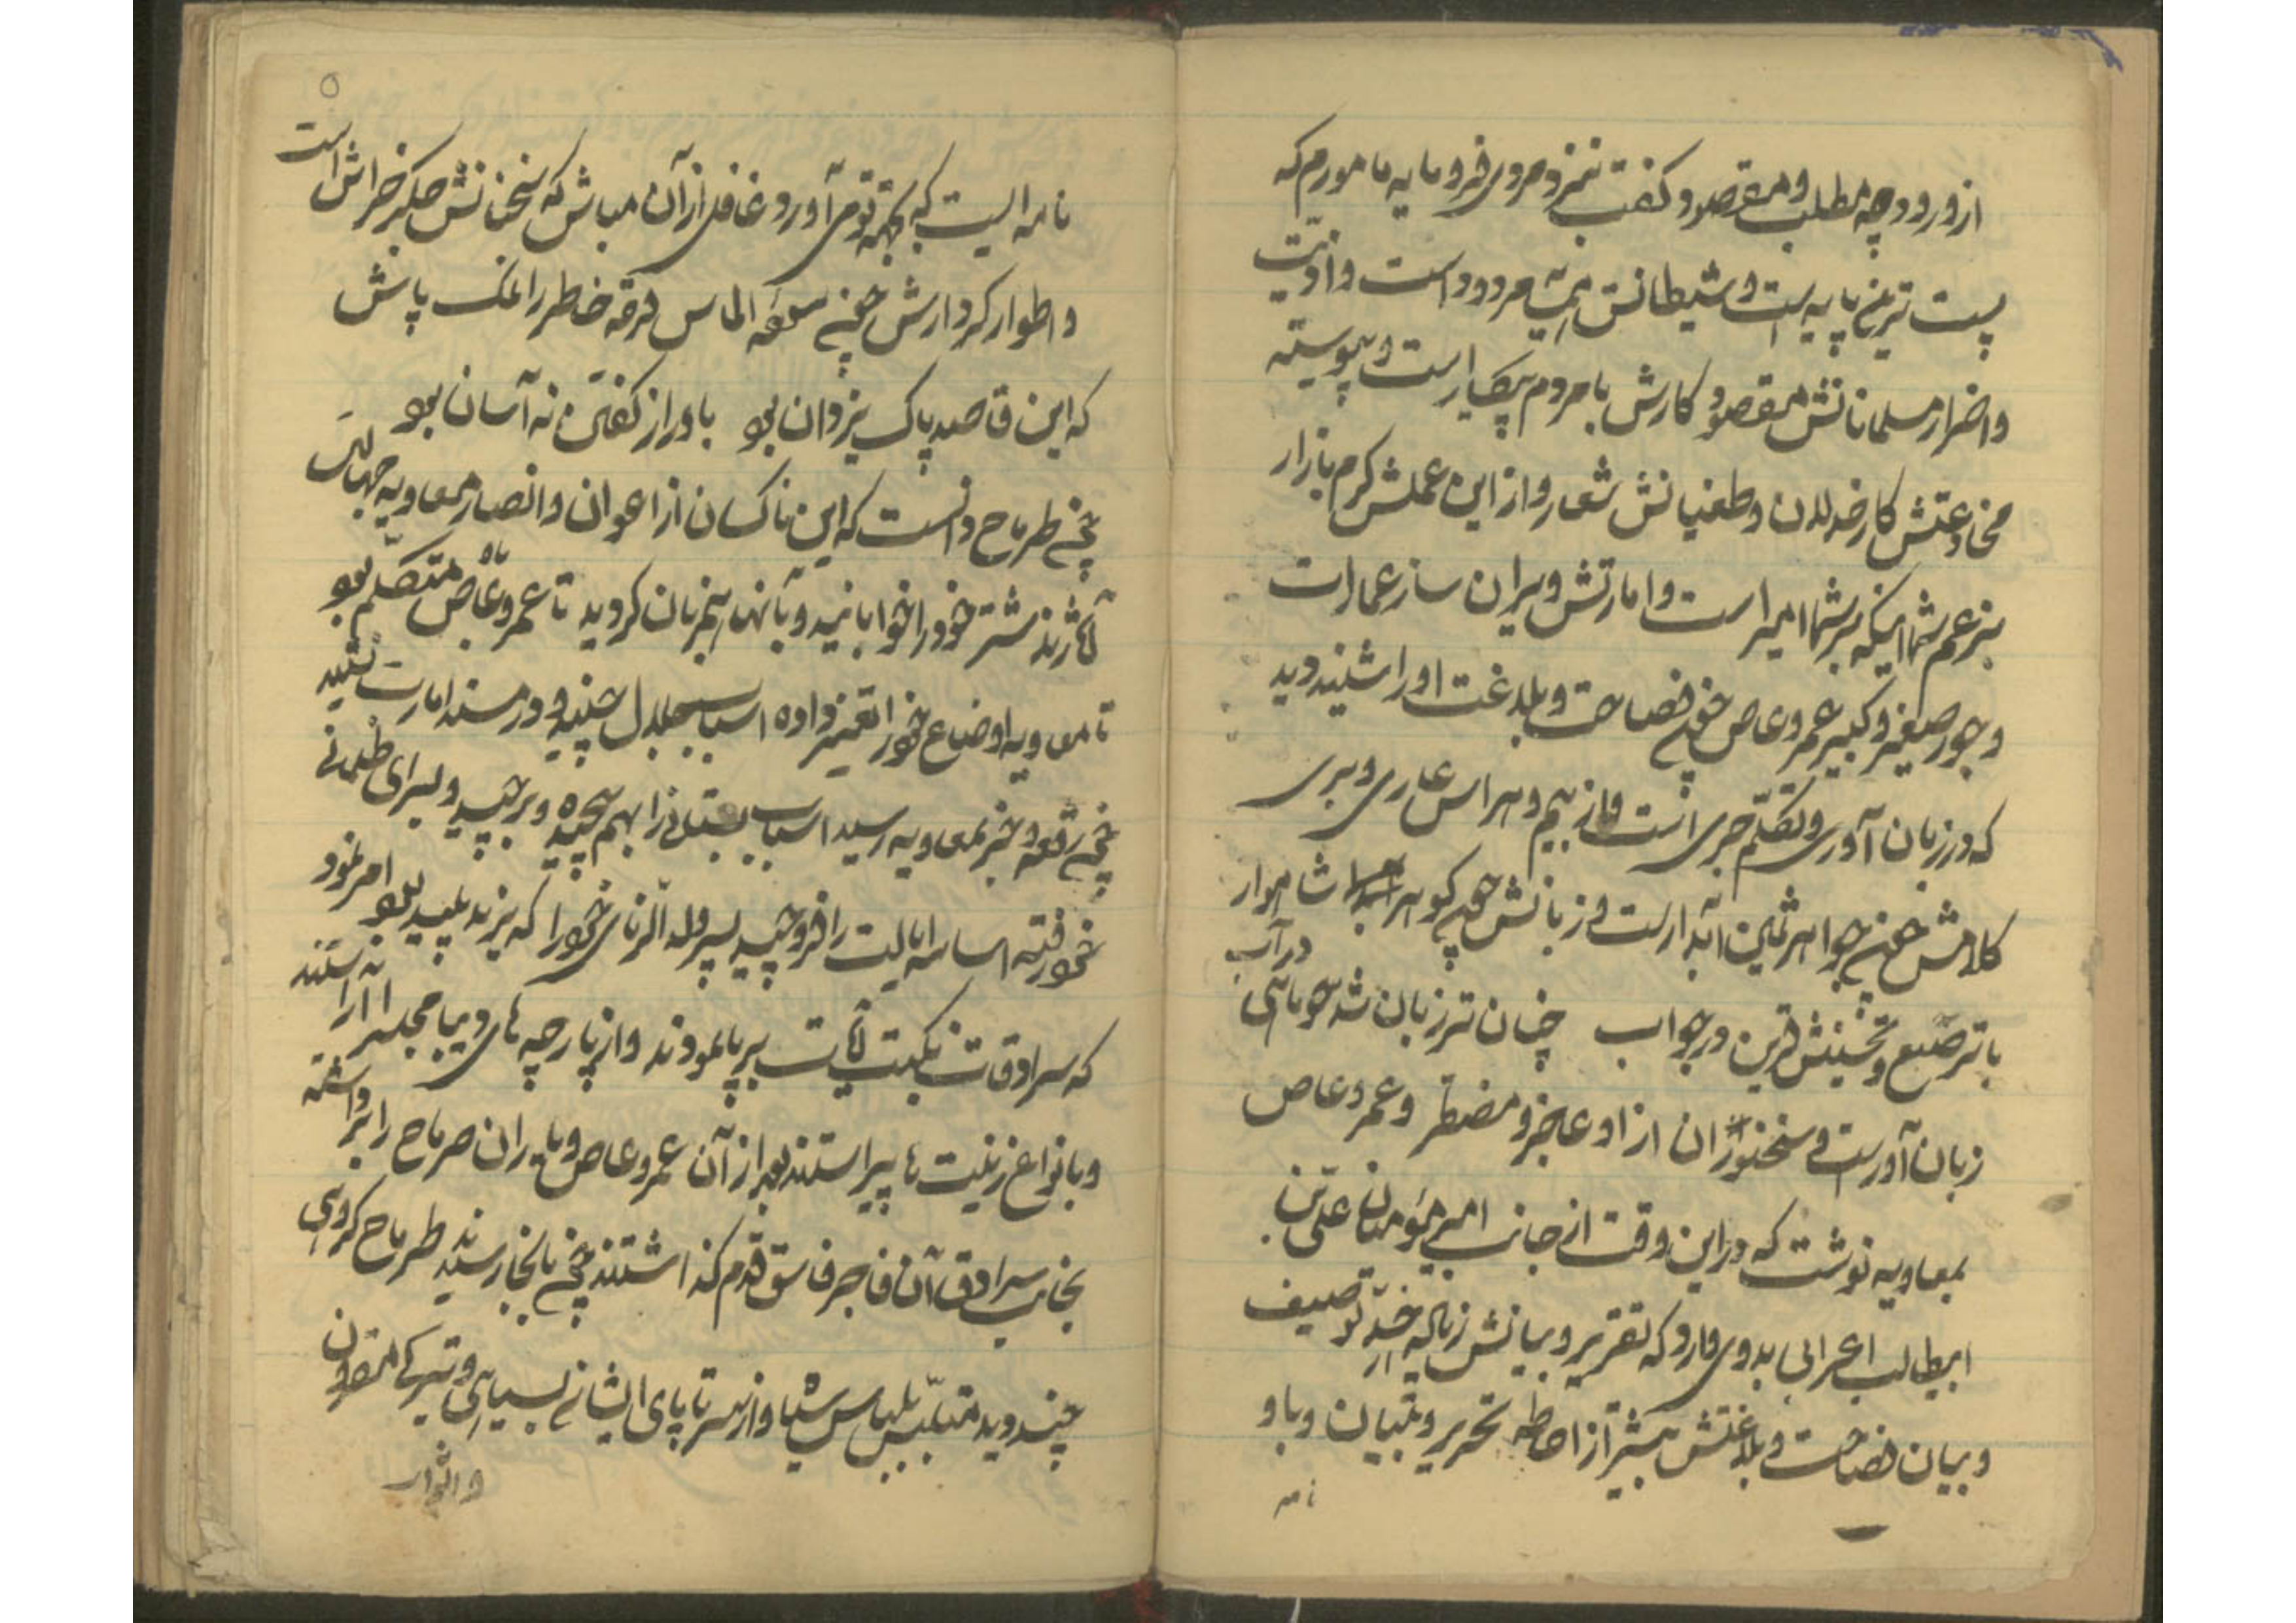 از ورود و چه مطلب و مقصود گفت نیز مردی فرومایه مامورم که
پست ترین پایه است و شیطانش مردود است و اذیت
و اضرار مسلمانانش مقصود کارش با مردم پیکار است و پیوسته
مخادعتش کار خذلان و طغیانش شعار و از این عملش گرم بازار
بزعم شما اینکه بر شما امیر است و امارتش ویران ساز عمارات
و چور صغیر و کبیر عمرو عاص چون فصاحت و بلاغت او را شنید و دید
که در زبان آوری و تکلّم جری است و از بیم و هراس عاری و بری
کلامش چون جواهر ثمین آبدار است و زبانش چون گوهر شاهوار
با ترصیع و تحسینش قرین در جواب چنان تر زبان شد چو ماهی در آب
زبان آور است و سخنوران از او عاجز و مضطر و عمرو عاص
بمعاویه نوشت که در این وقت از جانب امیر مؤمنان علیّ بن
ابیطالب اعرابی بدوی وارد که تقریر و بیانش زیاده از حدّ توصیف
و بیان فصاحت و بلاغتش بیشتر از احاطه تحریر و تبیان و با او
نا
۵
نامه ایست که بجهة تو می آورد غافل از آن مباش که سخنانش جگر خراش است
و اطوار کردارش چون سوده الماس قرحه خاطر را نمک پاش
که این قاصد پاک یزدان بود باو راز گفتن نه آسان بود
چون طرماح دانست که این ناکسان از اعوان و انصار معاویه جهالت
آثارند شتر خود را خوابانید و با آنها همزبان گردید تا عمرو عاص با او متکلم بود
تا معاویه اوضاع خود را تغییر داده اسباب جلال چیند و در مسند امارت نشیند
چون رقعه و خبر بمعاویه رسید اسباب بستانی را بهم پیچیده و برچید و بسرای ظلمانی
خود رفته اساس ایالت را فرو چید پسر ولد الزنای خود را که یزید پلید بود امر نمود
که سرادقات نکبت آیات بر پا نمودند و از پارچه های دیبا مجلس را آراستند
و بانواع زینت ها پیراستند بعد از آن عمرو عاص و یاران طرماح را برداشته
بجانب سرادق آن فاجر فاسق قدم گذاشتند چون بانجا رسیدند طرماح گروهی
چند دید متلبّس بلباس سیاه و از سر تا پای ایشان بسیاهی و تیرگی مقرون
و اثوار